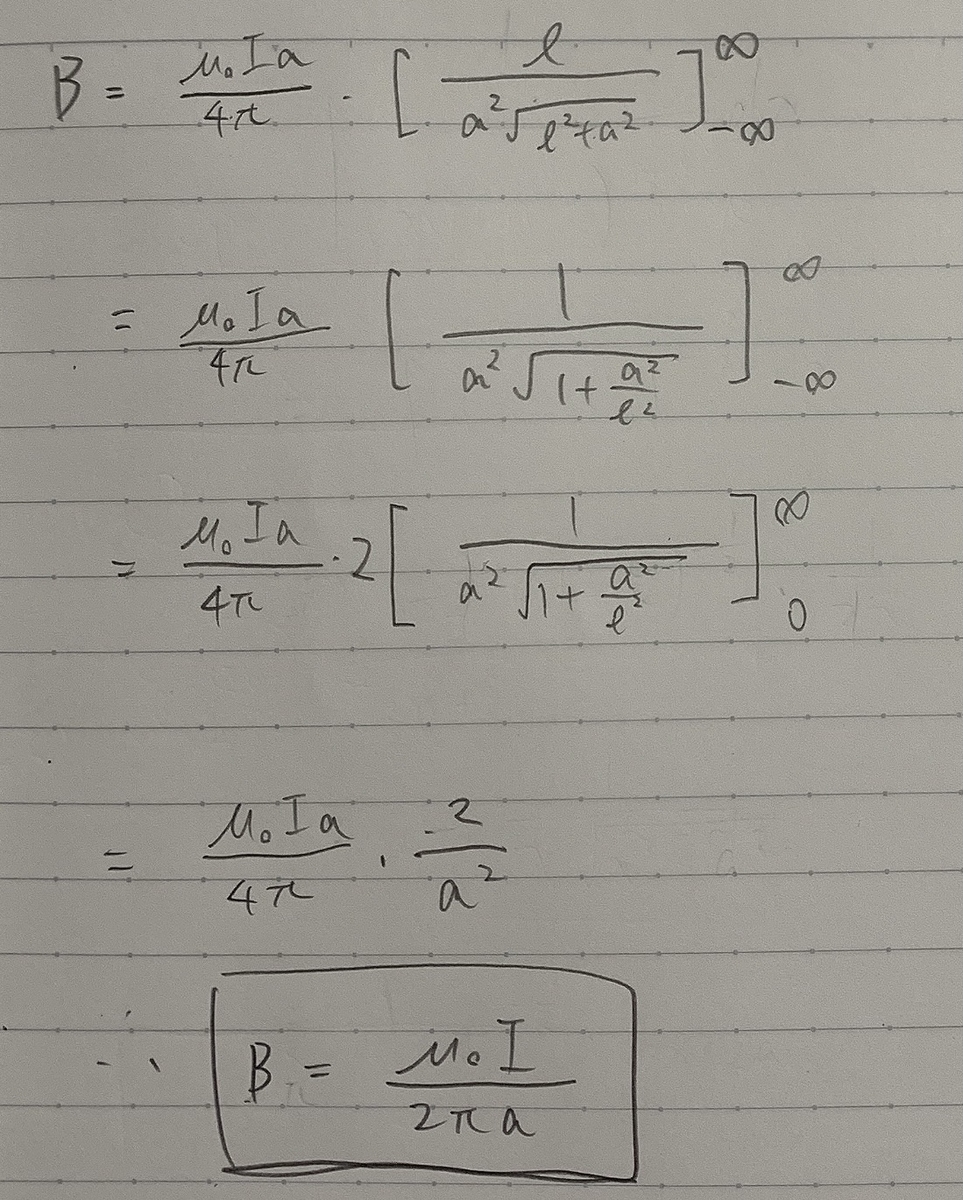 B = μ₀Ia/4π · [ ℓ/(a²√(ℓ²+a²)) ]_{-∞}^{∞}
= μ₀Ia/4π [ 1/(a²√(1+a²/ℓ²)) ]_{-∞}^{∞}
= μ₀Ia/4π · 2 [ 1/(a²√(1+a²/ℓ²)) ]_{0}^{∞}
= μ₀Ia/4π · 2/a²
∴ B = μ₀I/2πa